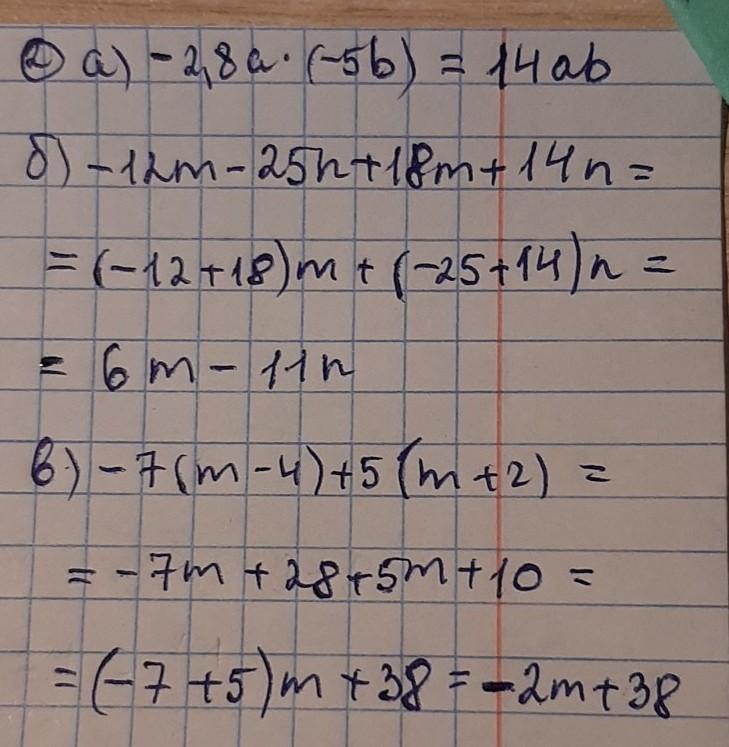 ② а) -2,8a·(-5b) = 14ab
б) -12m-25n+18m+14n=
=(-12+18)m+(-25+14)n=
= 6m-11n
в) -7(m-4)+5(m+2) =
= -7m+28+5m+10 =
=(-7+5)m+38=-2m+38